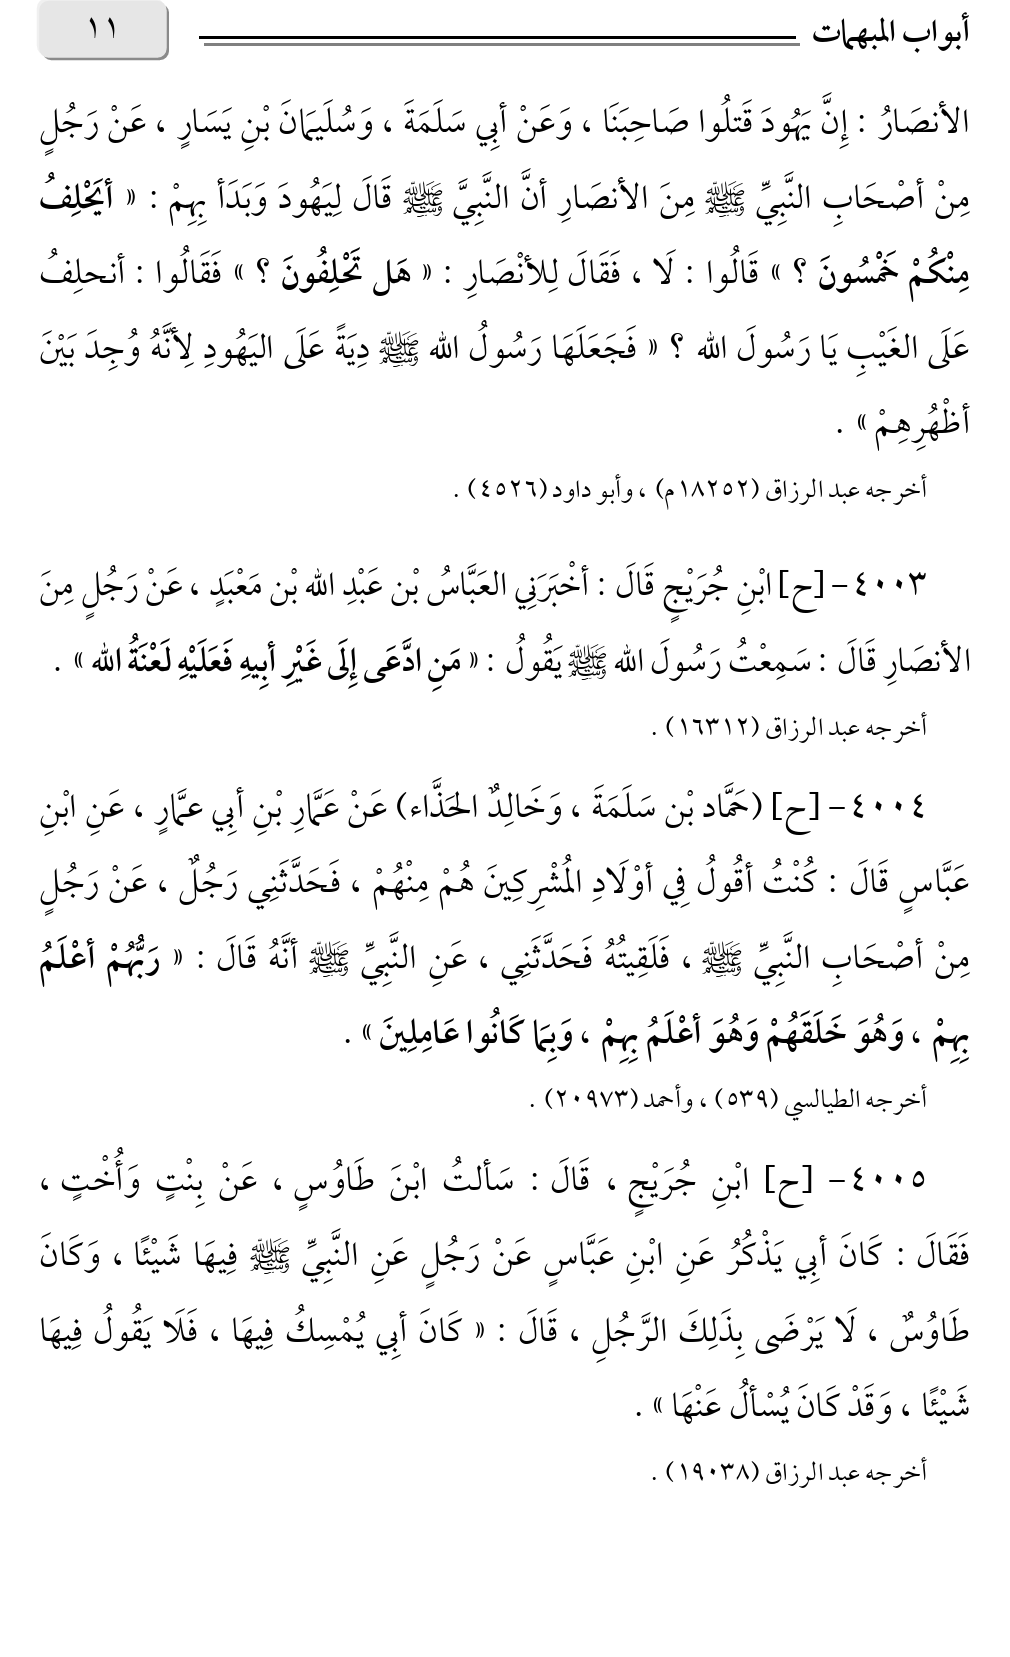 أبواب المبهمات
١١
الأنصَارُ : إِنَّ يَهُودَ قَتلُوا صَاحِبَنَا ، وَعَنْ أبِي سَلَمَةَ ، وَسُلَيمَانَ بْنِ يَسَارٍ ، عَنْ رَجُلٍ
مِنْ أصْحَابِ النَّبِيِّ ﷺ مِنَ الأنصَارِ أنَّ النَّبِيَّ ﷺ قَالَ لِيَهُودَ وَبَدَأ بِهِمْ : « أيَحْلِفُ
مِنْكُمْ خَمْسُونَ ؟ » قَالُوا : لَا ، فَقَالَ لِلأنْصَارِ : « هَل تَحْلِفُونَ ؟ » فَقَالُوا : أنحلِفُ
عَلَى الغَيْبِ يَا رَسُولَ الله ؟ « فَجَعَلَهَا رَسُولُ الله ﷺ دِيَةً عَلَى اليَهُودِ لِأنَّهُ وُجِدَ بَيْنَ
أظْهُرِهِمْ » .
أخرجه عبد الرزاق (١٨٢٥٢م) ، وأبو داود (٤٥٢٦) .
٤٠٠٣ – [ح] ابْنِ جُرَيْجٍ قَالَ : أخْبَرَنِي العَبَّاسُ بْن عَبْدِ الله بْن مَعْبَدٍ ، عَنْ رَجُلٍ مِنَ
الأنصَارِ قَالَ : سَمِعْتُ رَسُولَ الله ﷺ يَقُولُ : « مَنِ ادَّعَى إِلَى غَيْرِ أبِيهِ فَعَلَيْهِ لَعْنَةُ الله » .
أخرجه عبد الرزاق (١٦٣١٢) .
٤٠٠٤ – [ح] (حَمَّاد بْن سَلَمَةَ ، وَخَالِدٌ الحَذَّاء) عَنْ عَمَّارِ بْنِ أبِي عمَّارٍ ، عَنِ ابْنِ
عَبَّاسٍ قَالَ : كُنْتُ أقُولُ فِي أوْلَادِ المُشْرِكِينَ هُمْ مِنْهُمْ ، فَحَدَّثَنِي رَجُلٌ ، عَنْ رَجُلٍ
مِنْ أصْحَابِ النَّبِيِّ ﷺ ، فَلَقِيتُهُ فَحَدَّثَنِي ، عَنِ النَّبِيِّ ﷺ أنَّهُ قَالَ : « رَبُّهُمْ أعْلَمُ
بِهِمْ ، وَهُوَ خَلَقَهُمْ وَهُوَ أعْلَمُ بِهِمْ ، وَبِمَا كَانُوا عَامِلِينَ » .
أخرجه الطيالسي (٥٣٩) ، وأحمد (٢٠٩٧٣) .
٤٠٠٥ – [ح] ابْنِ جُرَيْجٍ ، قَالَ : سَألتُ ابْنَ طَاوُسٍ ، عَنْ بِنْتٍ وَأُخْتٍ ،
فَقَالَ : كَانَ أبِي يَذْكُرُ عَنِ ابْنِ عَبَّاسٍ عَنْ رَجُلٍ عَنِ النَّبِيِّ ﷺ فِيهَا شَيْئًا ، وَكَانَ
طَاوُسٌ ، لَا يَرْضَى بِذَلِكَ الرَّجُلِ ، قَالَ : « كَانَ أبِي يُمْسِكُ فِيهَا ، فَلَا يَقُولُ فِيهَا
شَيْئًا ، وَقَدْ كَانَ يُسْألُ عَنْهَا » .
أخرجه عبد الرزاق (١٩٠٣٨) .